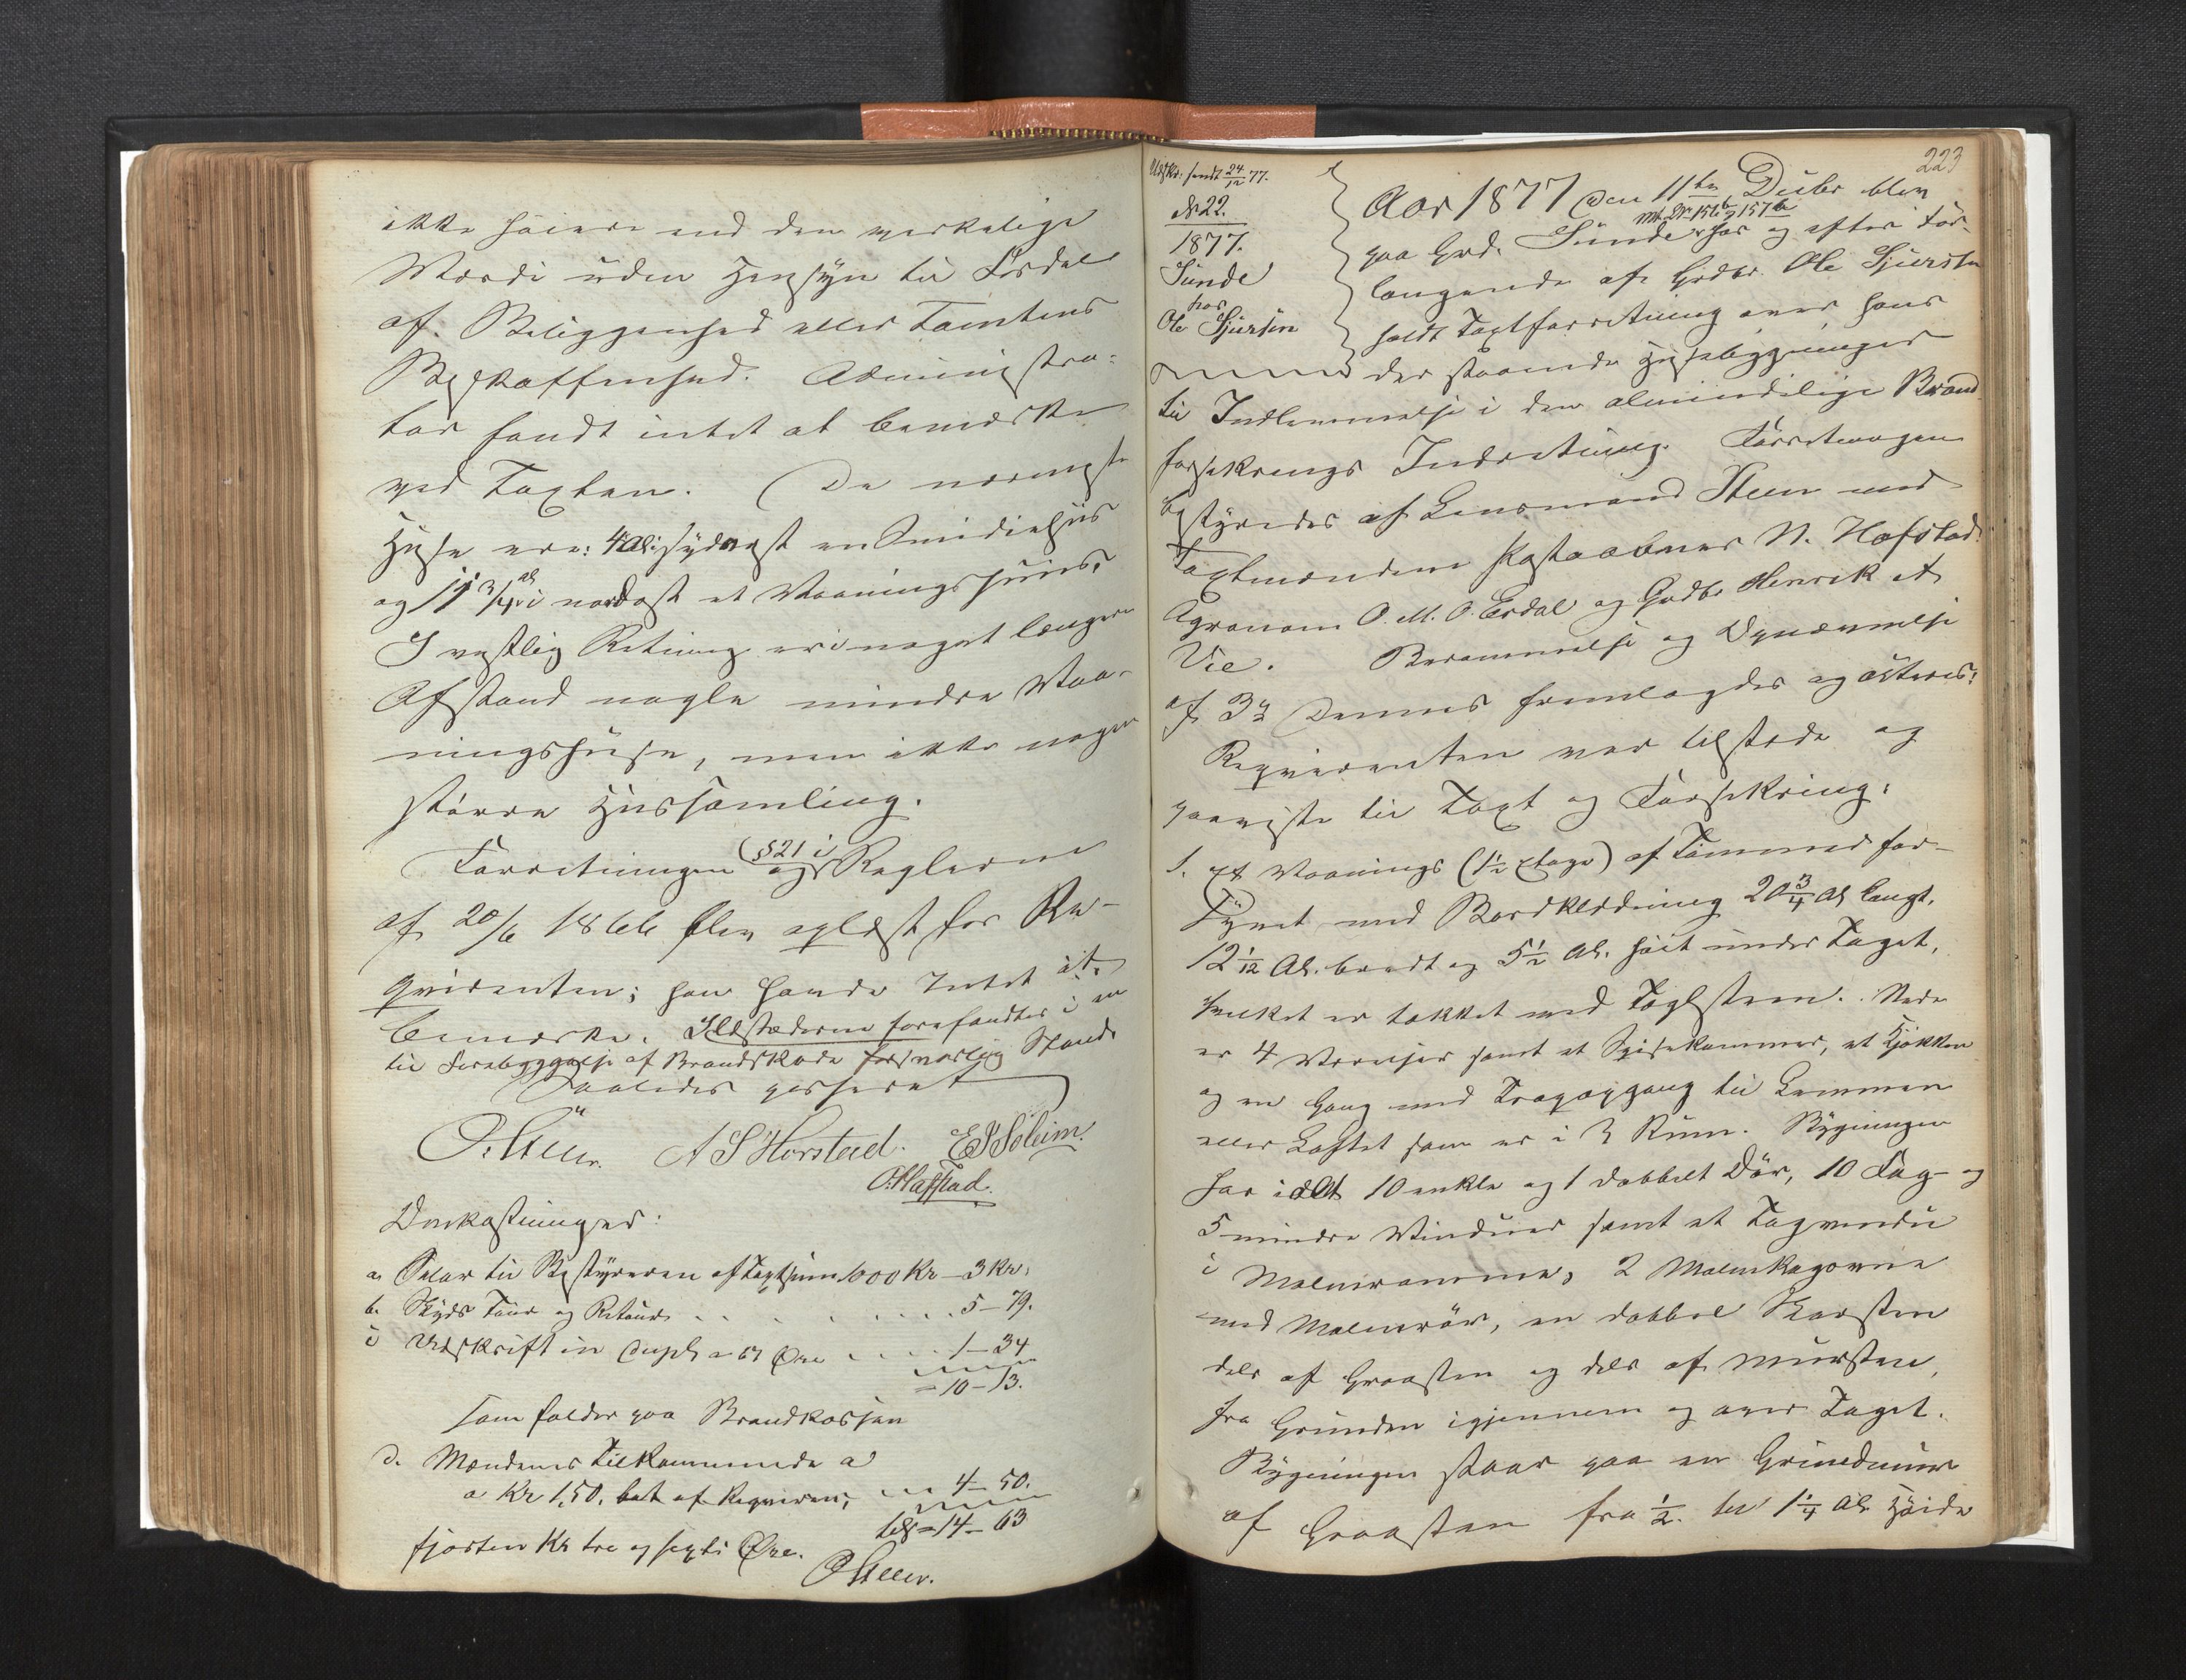 ikke høiere end den virkelige
Værdi uden Hensyn til Fordele
af Beliggenhed eller Tomtens
Beskaffenhed. Administra-
tor fandt intet at bemærke
ved Taxten. De nærmeste
Huse ere: 4 Al: sydvest en Smidiehus
og 11 3/4 al i nordost et Vaaningshuus.
I vestlig Retning er i noget længere
Afstand nogle mindre Vaa-
ningshuse, men ikke nogen
større Hussamling.
Forretningen og (§ 21 i Reglerne
af 20/6 1866 blev oplæst for Re-
qvirenten; han havde Intet at
bemærke. Ildstæderne forefandtes i en
til Forebyggelse af Brandskade forsvarlig Stand.
Saaledes passeret
O. Steen. A S Horstad. E J Soleim.
O. Hafstad.
Omkostninger:
a. Salær til Bestyreren af Taxtsum 1000 Kr – 3 Kr.
b. Skyds Tour og Retour . . . . . 5 – 79.
c Udskrift in dupl. a 67 Øre . . . . 1 – 34
= 10 – 13.
som falder paa Brandkassen
d. Mændenes Tilkommende a
a Kr 1,50. bet. af Reqvirent, 4 – 50.
tils = 14 – 63
fjorten Kr tre og sexti Øre.
O Steen.
223
Udskr. sendt 24/12 77.
No 22.
1877.
Sunde
hos
Ole Sjursen
Aar 1877 den 11te Decbr blev
Mt. Nr. 156b & 157b
paa Grd. Sunde hos og efter For-
langende af Grdbr. Ole Sjursen
holdt Taxtforretning over hans
der staaende Husebygninger
til Indlemmelse i den almindelige Brand
forsikrings Indretning. Forretningen
bestyredes af Lensmand Steen med
Taxtmændene Postaabner N. Hafstad.
Agronom O. M. O. Erdal og Grdbr Henrik A
Vie. Berammelse og Opnævnelse
af 3de Dennes fremlagdes og æsteres:
Reqvirenten var tilstede og
paaviste til Taxt og Forsikring:
1. et Vaanings (1½ Etage) af Tømmer for-
synet med Bordklædning 20 3/4 Al langt.
12 1/12 Al. bredt og 5½ Al. høit under Taget,
hvilket er tækket med Taglsteen. Nede
er 4 Værelser samt et Spisekammer, et Kjøkken
og en Gang med Trapopgang til Lemmen
eller Loftet som er i 3 Rum. Bygningen
har ialt 10 enkle og 1 dobbelt Dör, 10 Fag- og
5 mindre Vinduer samt et Tagvindu
i Malmramme, 2 Malmkagovne
med Malmrör, en dobbel Skorsten
dels af Graasten og dels af Mursten,
fra Grunden igjennem og over Taget.
Bygningen staar paa en Grundmur
af Graasten fra ½ til 1¼ Al. Høide